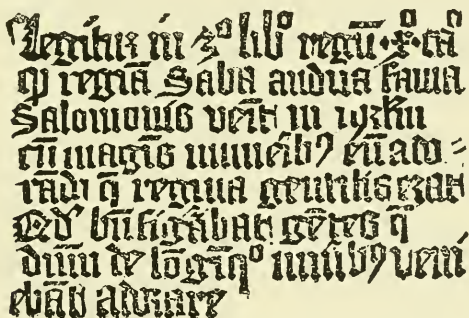 Legitur in 3º libº regū·x·cāº
ꝙ regiā Saba audita fama
Salomonis venīt in ihrlm
cū magis munerib9 eū ado=
rādi q̄ regina gentilis erat
Qd̄ bn̄ figrābat gētes q̄
dnm de lōgiq̄º munib9 veni
ebāt adorare